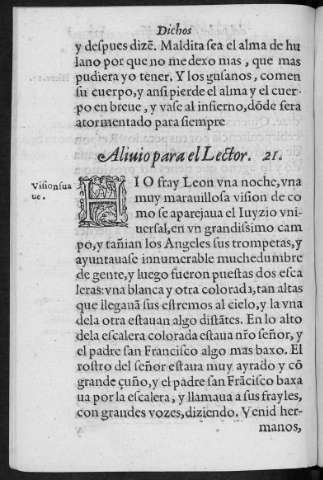 Dichos
y despues dizẽ. Maldita sea el alma de hu
lano por que no me dexo mas, que mas
pudiera yo tener. Y los gusanos, comen
su cuerpo, y ansi pierde el alma y el cuer
po en breue, y vase al infierno, dõde sera
atormentado para siempre
Aliuio para el Lector. 21.
Vision sua
ue.
HIO fray Leon vna noche, vna
muy marauillosa vision de co
mo se aparejaua el Iuyzio vni
uersal, en vn grandissimo cam
po, y tañian los Angeles sus trompetas, y
ayuntauase innumerable muchedumbre
de gente, y luego fueron puestas dos esca
leras: vna blanca y otra colorada, tan altas
que llegauã sus estremos al cielo, y la vna
dela otra estauan algo distãtes. En lo alto
dela escalera colorada estaua nr̃o señor, y
el padre san Francisco algo mas baxo. El
rostro del señor estaua muy ayrado y cõ
grande çuño, y el padre san Frãcisco baxa
ua por la escalera, y llamaua a sus frayles,
con grandes vozes, diziendo. Venid her-
manos,